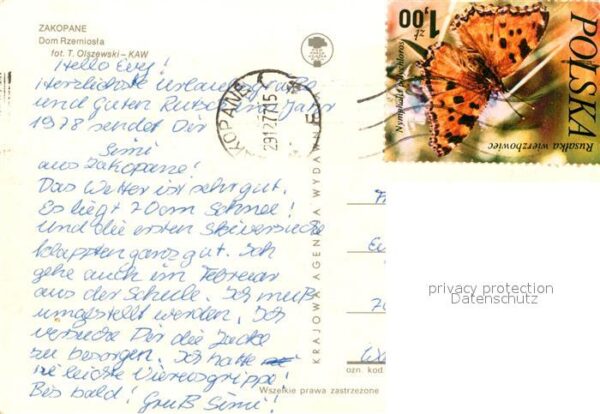 ZAKOPANE
Dom Rzemiosła
fot. T. Olszewski – KAW
Hello Evy!
Herzlichste Urlaubsgrüße
und Guten Rutsch im Jahr
1978 sendet Dir
Simi
aus Zakopane!
Das Wetter ist sehr gut.
Es liegt 70cm Schnee!
Und die ersten Skiversuche
klappten ganz gut. Ich
gehe auch im Februar
aus der Schule. Ich muß
umgestellt werden. Ich
versuche Dir die Jacke
zu besorgen. Ich hatte
ne leichte Virusgrippe!
Bis bald! Gruß Simi!
ZAKOPANE
291277-15
KRAJOWA AGENCJA WYDAWN
Wszelkie prawa zastrzeżone
ozn. kod
zł 1,00
POLSKA
Nymphalis
Rusałka wierzbowiec
privacy protection
Datenschutz